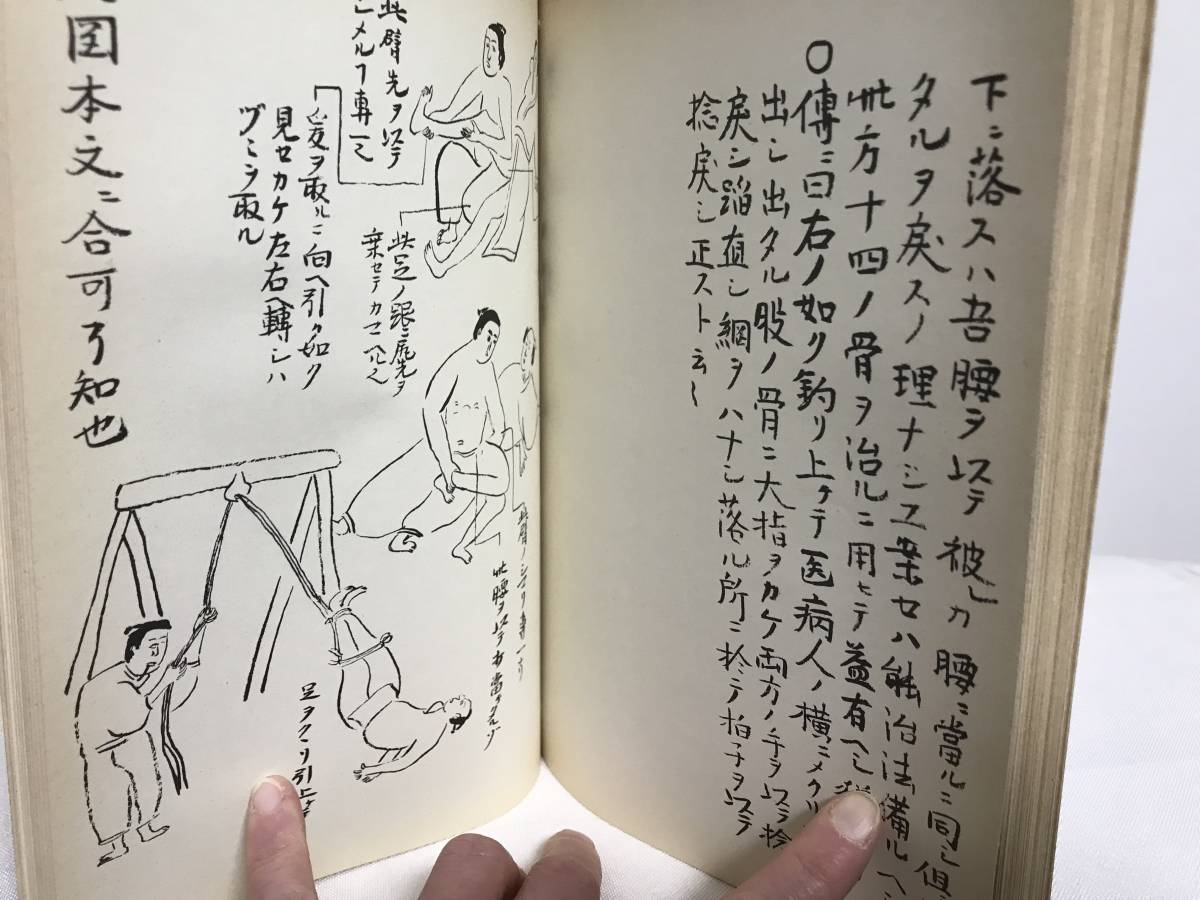 下ニ落スハ吾腰ヲ以テ彼レカ腰ニ當ルニ同シ但
タルヲ戻スノ理ナシ工案セハ能治法備ルヘシ
此方十四ノ骨ヲ治ルニ用ヒテ益有ヘシ
〇傳ニ曰右ノ如リ釣リ上ケテ医病人ノ横ニメクリ
出シ出タル股ノ骨ニ大指ヲカケ両方ノ手ヲ以テ捻
戻シ蹈直シ綱ヲハナシ落ル所ニ於テ拍子ヲ以テ
捻戻シ正スト云々
此臂ノシマリ専一ナリ
此腰ヲ以テ右當
足ヲクヽリ引上ケ
此臂先ヲ以テ
シメルヿ専一也
此足ノ跟ニ尻先ヲ
乗セテカマヘル
ヲ取ルニ向ヘ引ク如ク
見セカケ左右ヘ轉シハ
ヅミヲ取ル
図本文ニ合可ク知也